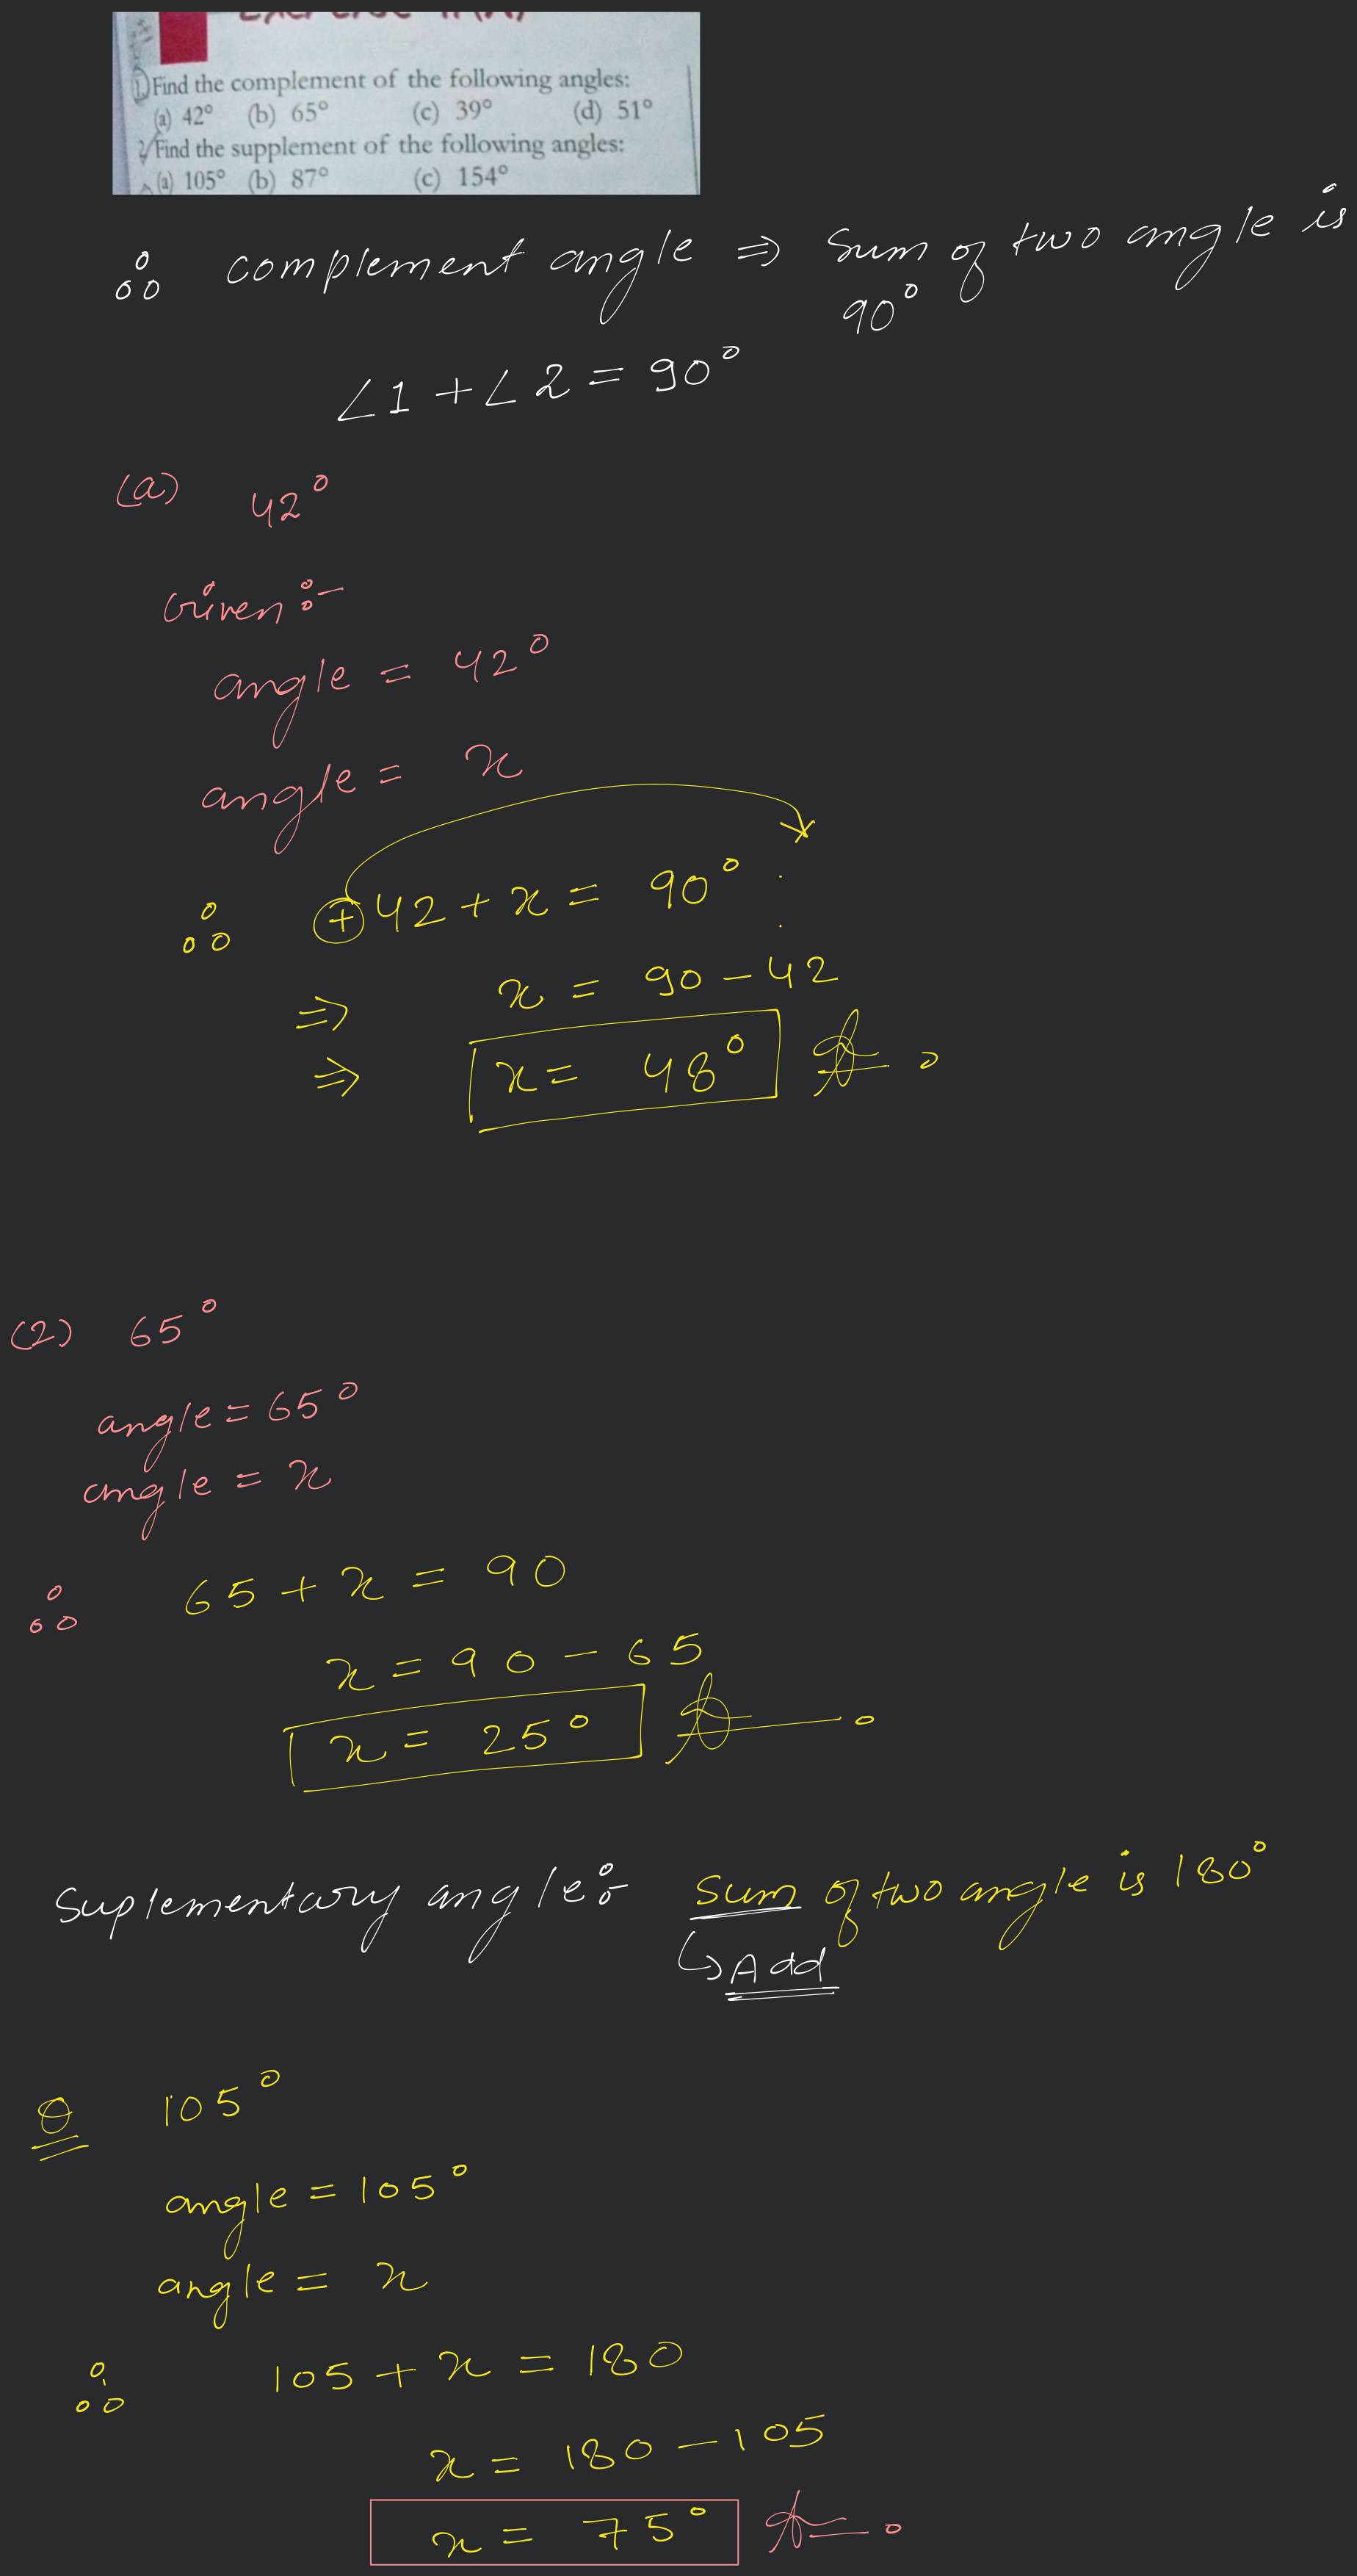 1. Find the complement of the following angles:
(a) 42° (b) 65° (c) 39° (d) 51°
2. Find the supplement of the following angles:
(a) 105° (b) 87° (c) 154°
∴ complement angle ⇒ Sum of two angle is
90°
∠1 + ∠2 = 90°
(a) 42°
Given :-
angle = 42°
angle = x
∴ +42 + x = 90°
⇒ x = 90 - 42
⇒ x = 48°
(2) 65°
angle = 65°
angle = x
∴ 65 + x = 90
x = 90 - 65
x = 25°
Suplementary angle: Sum of two angle is 180°
↳ Add
Q 105°
angle = 105°
angle = x
∴ 105 + x = 180
x = 180 - 105
x = 75°